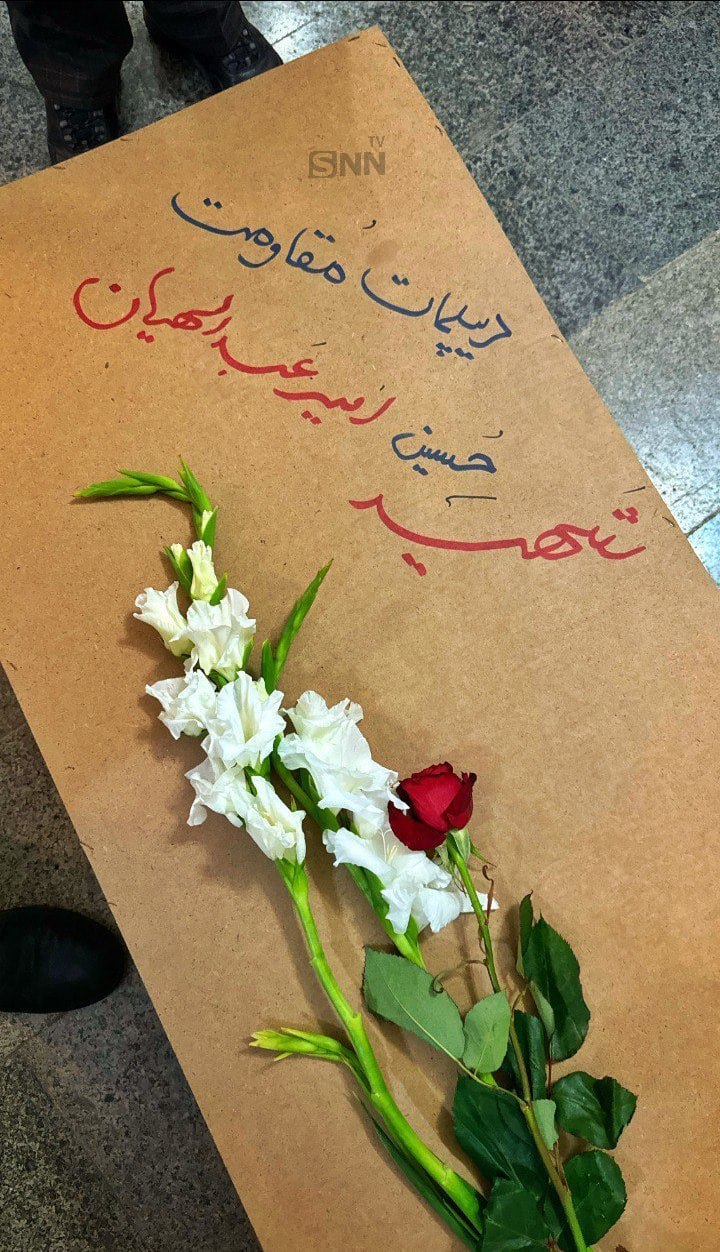 SNN TV
دیپلمات مُقاومت
اَمیر عَبداللهیان
حُسین
شَهید